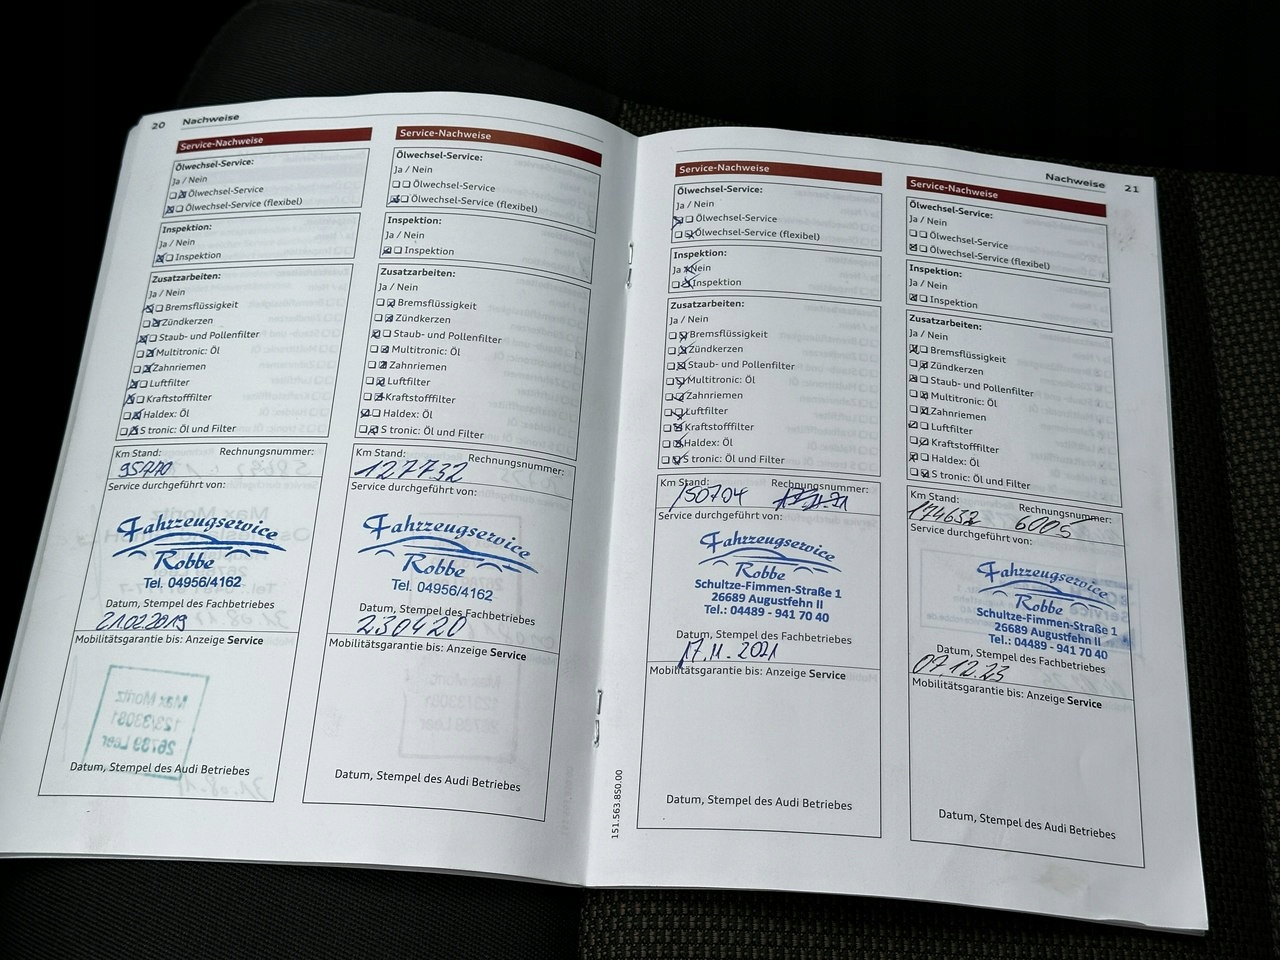 20 Nachweise
Service-Nachweise
Ölwechsel-Service:
Ja / Nein
Ölwechsel-Service
Ölwechsel-Service (flexibel)
Inspektion:
Ja / Nein
Inspektion
Zusatzarbeiten:
Ja / Nein
Bremsflüssigkeit
Zündkerzen
Staub- und Pollenfilter
Multitronic: Öl
Zahnriemen
Luftfilter
Kraftstofffilter
Haldex: Öl
S tronic: Öl und Filter
Km Stand: Rechnungsnummer:
95770
Service durchgeführt von:
Fahrzeugservice
Robbe
Tel. 04956/4162
Datum, Stempel des Fachbetriebes
21.02.2019
Mobilitätsgarantie bis: Anzeige Service
Datum, Stempel des Audi Betriebes
Service-Nachweise
Ölwechsel-Service:
Ja / Nein
Ölwechsel-Service
Ölwechsel-Service (flexibel)
Inspektion:
Ja / Nein
Inspektion
Zusatzarbeiten:
Ja / Nein
Bremsflüssigkeit
Zündkerzen
Staub- und Pollenfilter
Multitronic: Öl
Zahnriemen
Luftfilter
Kraftstofffilter
Haldex: Öl
S tronic: Öl und Filter
Km Stand: Rechnungsnummer:
127732
Service durchgeführt von:
Fahrzeugservice
Robbe
Tel. 04956/4162
Datum, Stempel des Fachbetriebes
230420
Mobilitätsgarantie bis: Anzeige Service
Datum, Stempel des Audi Betriebes
151.563.850.00
Nachweise 21
Service-Nachweise
Ölwechsel-Service:
Ja / Nein
Ölwechsel-Service
Ölwechsel-Service (flexibel)
Inspektion:
Ja / Nein
Inspektion
Zusatzarbeiten:
Ja / Nein
Bremsflüssigkeit
Zündkerzen
Staub- und Pollenfilter
Multitronic: Öl
Zahnriemen
Luftfilter
Kraftstofffilter
Haldex: Öl
S tronic: Öl und Filter
Km Stand: Rechnungsnummer:
150704
Service durchgeführt von:
Fahrzeugservice
Robbe
Schultze-Fimmen-Straße 1
26689 Augustfehn II
Tel.: 04489 - 941 70 40
Datum, Stempel des Fachbetriebes
17.11.2021
Mobilitätsgarantie bis: Anzeige Service
Datum, Stempel des Audi Betriebes
Service-Nachweise
Ölwechsel-Service:
Ja / Nein
Ölwechsel-Service
Ölwechsel-Service (flexibel)
Inspektion:
Ja / Nein
Inspektion
Zusatzarbeiten:
Ja / Nein
Bremsflüssigkeit
Zündkerzen
Staub- und Pollenfilter
Multitronic: Öl
Zahnriemen
Luftfilter
Kraftstofffilter
Haldex: Öl
S tronic: Öl und Filter
Km Stand: Rechnungsnummer:
174632 6005
Service durchgeführt von:
Fahrzeugservice
Robbe
Schultze-Fimmen-Straße 1
26689 Augustfehn II
Tel.: 04489 - 941 70 40
Datum, Stempel des Fachbetriebes
07.12.23
Mobilitätsgarantie bis: Anzeige Service
Datum, Stempel des Audi Betriebes